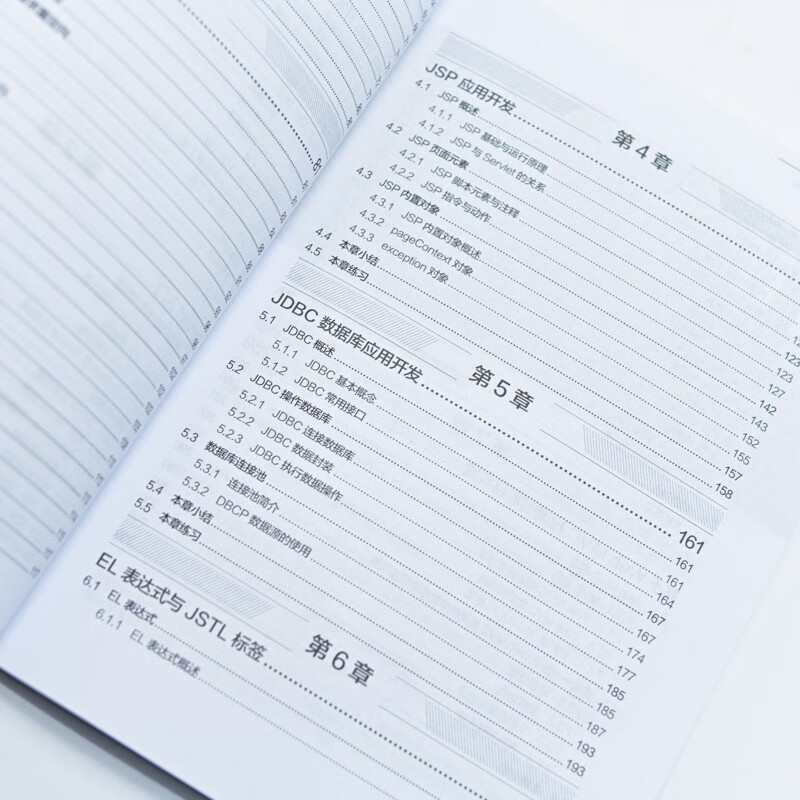 第 4 章
JSP 应用开发
4.1 JSP 概述
4.1.1 JSP 基础与运行原理
4.1.2 JSP 与 Servlet 的关系
4.2 JSP 页面元素 123
4.2.1 JSP 脚本元素与注释 123
4.2.2 JSP 指令与动作 127
4.3 JSP 内置对象 142
4.3.1 JSP 内置对象概述 143
4.3.2 pageContext 对象 152
4.3.3 exception 对象 155
4.4 本章小结 157
4.5 本章练习 158
第 5 章
JDBC 数据库应用开发 161
5.1 JDBC 概述 161
5.1.1 JDBC 基本概念 161
5.1.2 JDBC 常用接口 164
5.2 JDBC 操作数据库 167
5.2.1 JDBC 连接数据库 167
5.2.2 JDBC 数据封装 174
5.2.3 JDBC 执行数据操作 177
5.3 数据库连接池 185
5.3.1 连接池简介 185
5.3.2 DBCP 数据源的使用 187
5.4 本章小结 193
5.5 本章练习 193
第 6 章
EL 表达式与 JSTL 标签
6.1 EL 表达式
6.1.1 EL 表达式概述